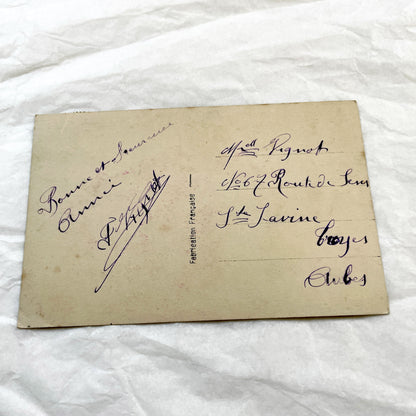 Bonne et Heureuse
Année
F Vignot
Fabrication Française
Mell Vignot
No 67 Route de Sens
Ste Savine
Troyes
Aube